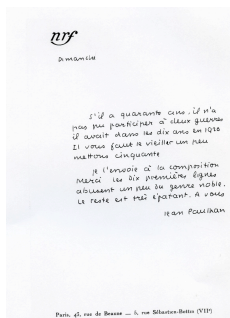 nrf
Dimanche
S'il a quarante ans, il n'a
pas pu participer à deux guerres
il avait dans les dix ans en 1920
Il vous faut le vieillir un peu
mettons cinquante
Je l'envoie à la composition
Merci les dix premières lignes
abusent un peu du genre noble.
Le reste est très épatant. A vous
Jean Paulhan
Paris, 43, rue de Beaune — 5, rue Sébastien-Bottin (VIIe)